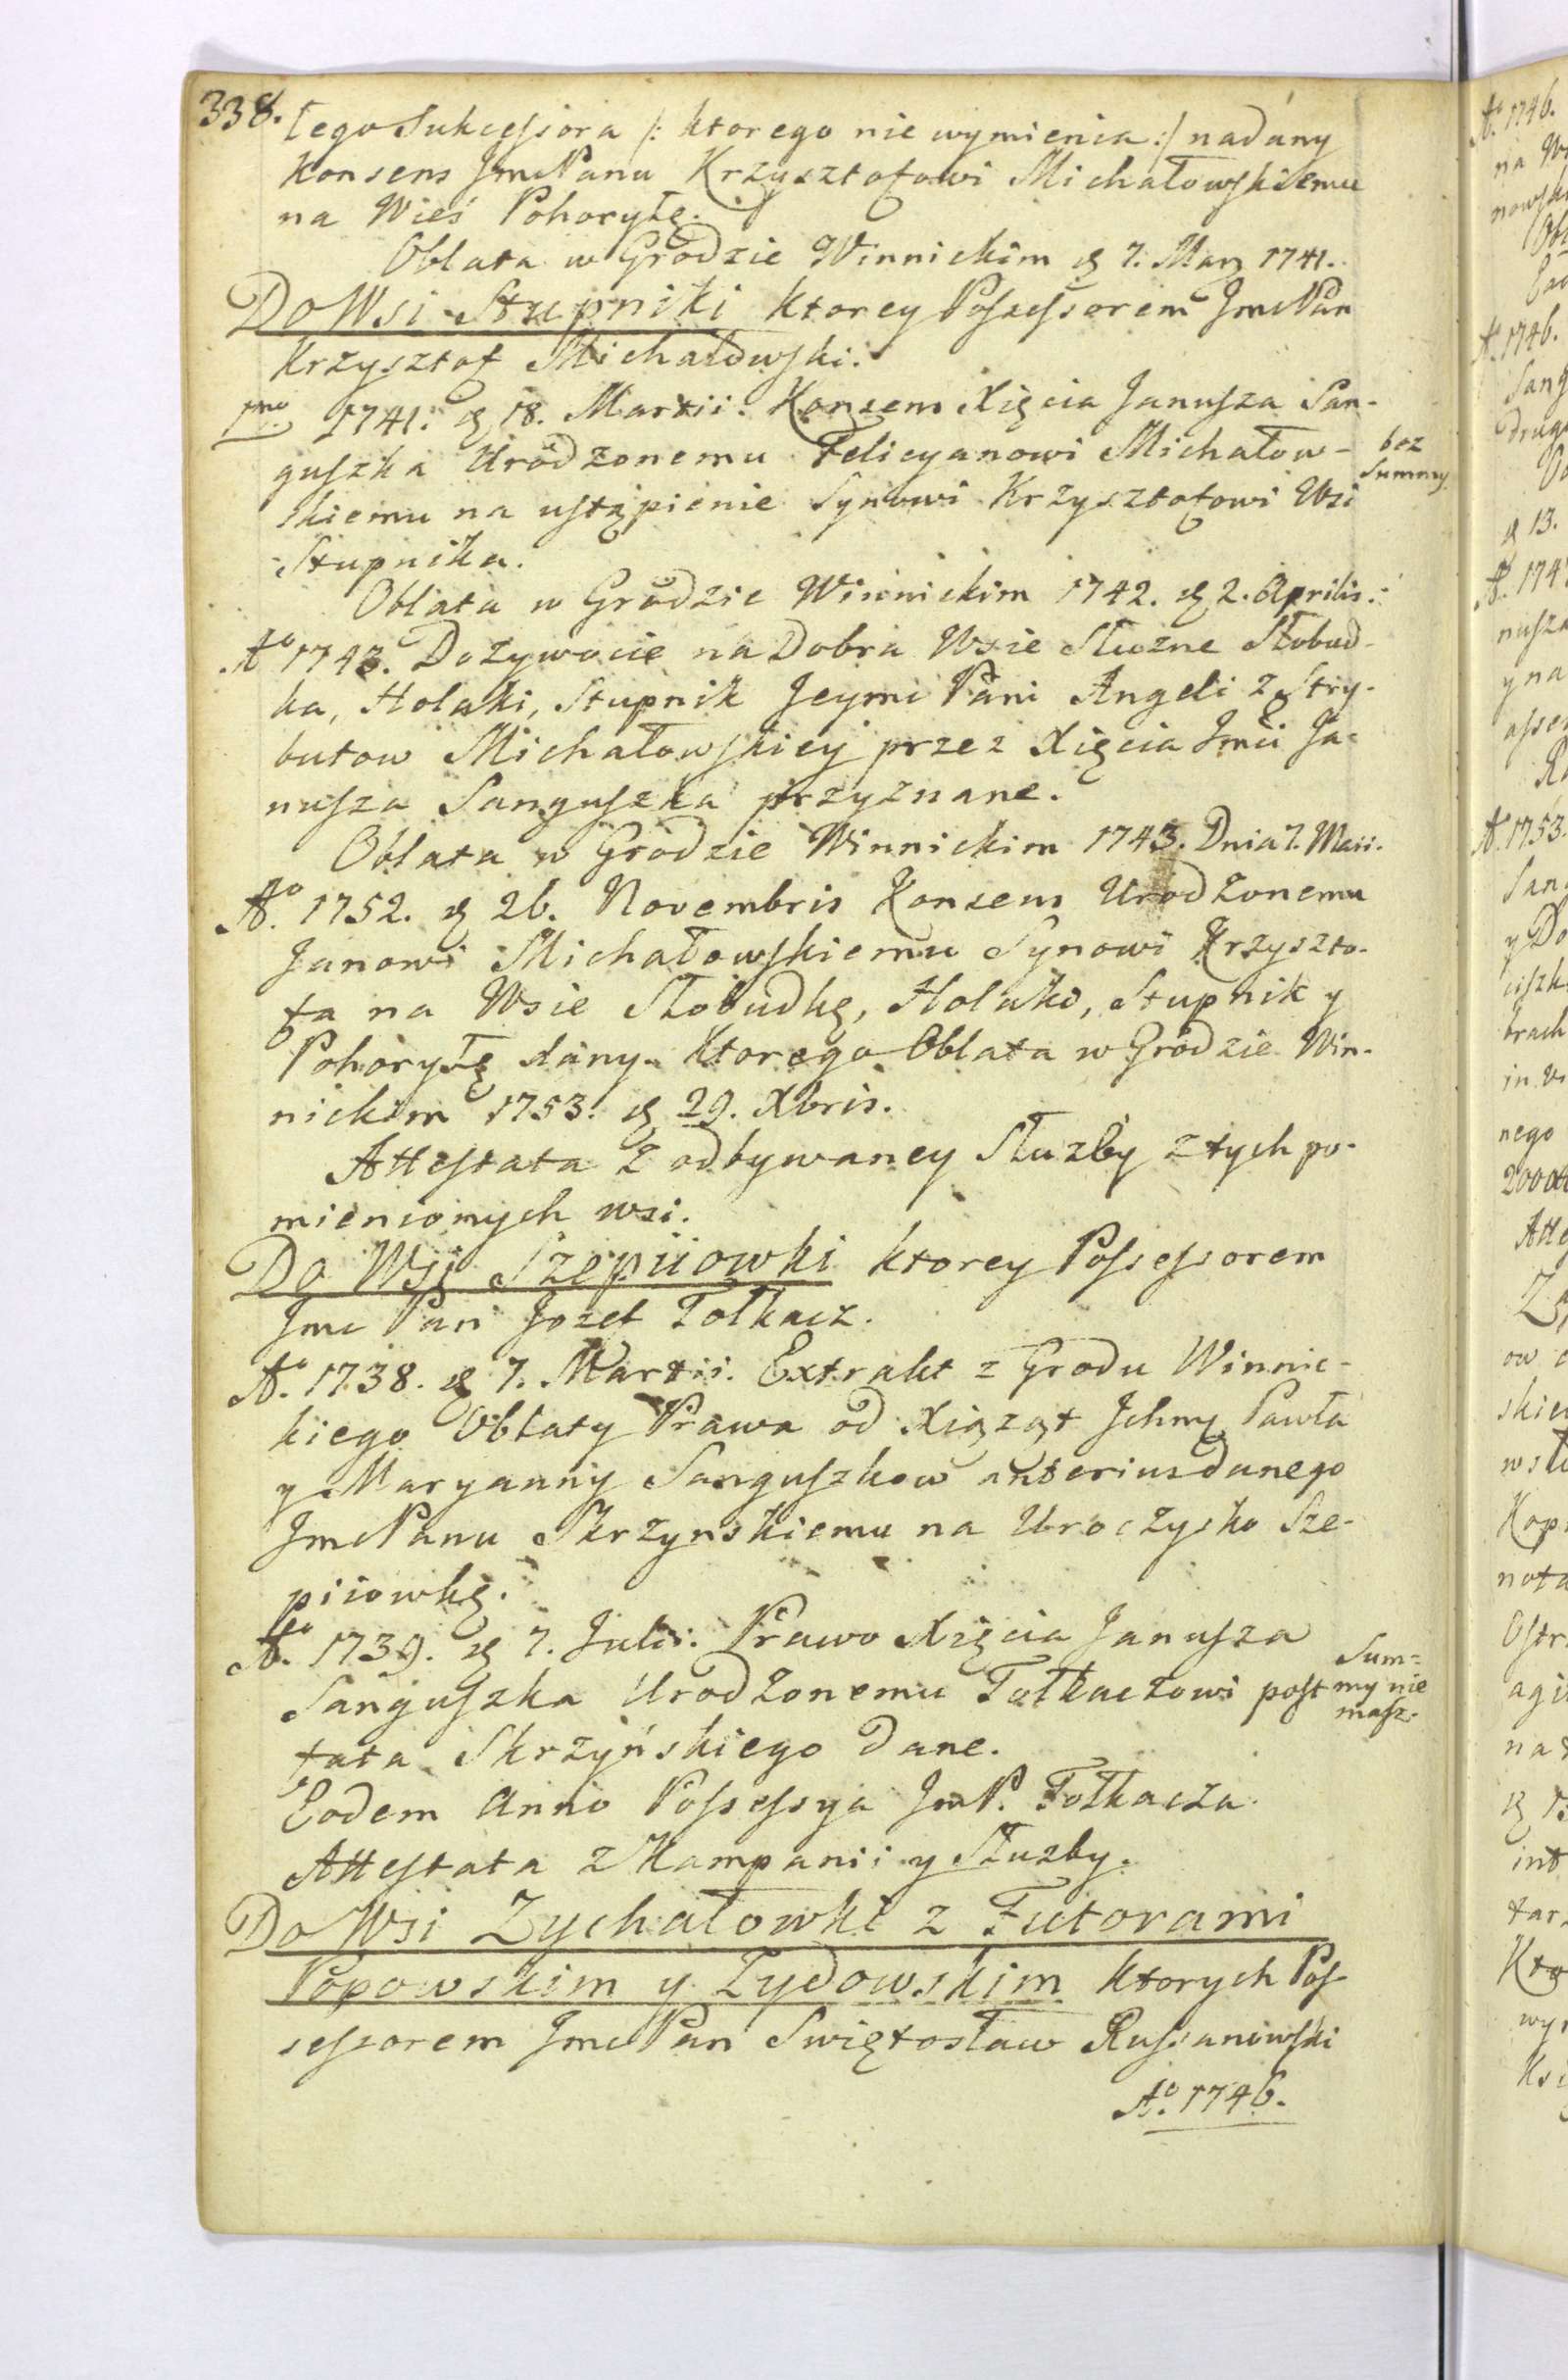 338. tego Sukcessora /: ktorego nie wymienia :/ nadany
Konsens JmcPanu Krzysztofowi Michałowskiemu
na Wieś Pohoryłę.
Oblata w Grodzie Winnickim d 7. Marz 1741.
Do Wsi Stupniki ktorey Possessorem JmcPan
Krzysztof Michałowski.
1mo 1741. d 18. Martii. Konsens Xięcia Janusza San-
guszka Urodzonemu Felicyanowi Michałow-
bez
Summy.
skiemu na ustąpienie Synowi Krzysztofowi Wsi
Stupnika.
Oblata w Grodzie Winnickim 1742. d 2. Aprilis.
Ao 1743. Dozywocie na Dobra Wsie Słuzne Słobud-
ka, Holaki, Stupnik Jeymci Pani Angeli z Stry-
butow Michałowskiey przez Xięcia Jmci Ja-
nusza Sanguszka przyznane.
Oblata w Grodzie Winnickim 1743. Dnia 7. Maii.
Ao. 1752. d 26. Novembris Konsens Urodzonemu
Janowi Michałowskiemu Synowi Krzyszto-
fa na Wsie Słobudkę, Holaki, Stupnik y
Pohoryłę dany. Ktorego Oblata w Grodzie Win-
nickim 1753. d 29. Xbris.
Attestata z odbywaney Słuzby z tych po-
mienionych wsi.
Do Wsi Szepiiowki ktorey Possessorem
Jmc Pan Jozef Tołkacz.
Ao. 1738. d 7. Martii. Extrakt z Grodu Winnic-
kiego Oblaty Prawa od Xiążąt Jchmę Pawła
y Maryanny Sanguszkow anteriusdanego
JmcPanu Skrzynskiemu na Uroczysko Sze-
piiowkę.
Ao. 1739. d 7. Julii. Prawo Xięcia Janusza
Sanguszka Urodzonemu Tołkaczowi post
Sum-
my nie
masz.
fata Skrzyńskiego dane.
Eodem Anno Possessya JmP. Tołkacza.
Attestata z Kampanii y Słuzby.
Do Wsi Zychałowki z Futorami
Popowskim y Zydowskim ktorych Pos-
sessorem JmcPan Swiętosław Russanowski
Ao. 1746.